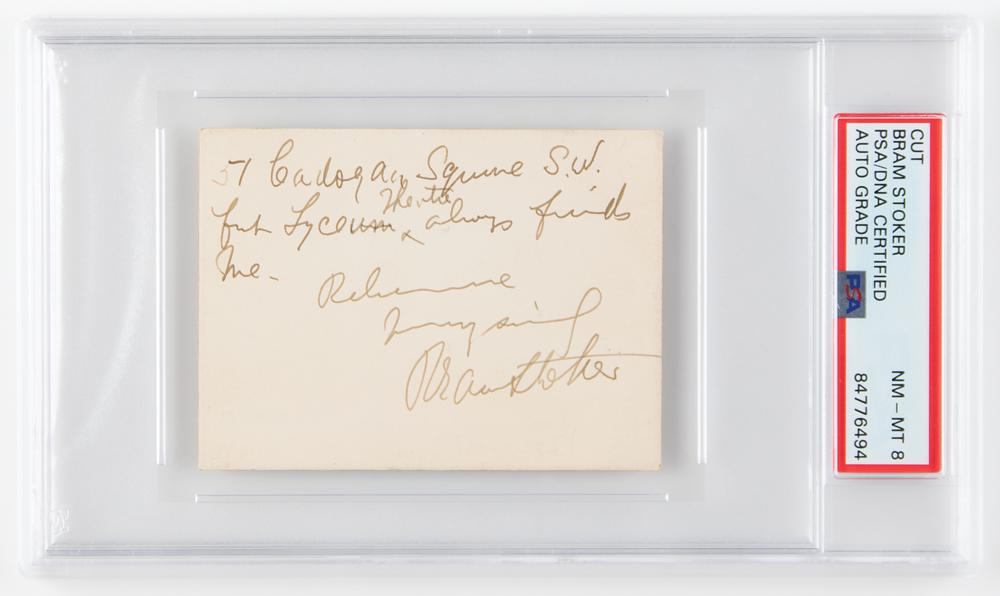 51 Cadogan Square S.W.
but Lyceum Theatre always finds
me.
Believe me
Bram Stoker
CUT
BRAM STOKER
PSA/DNA CERTIFIED
AUTO GRADE
NM-MT 8
84776494
PSA